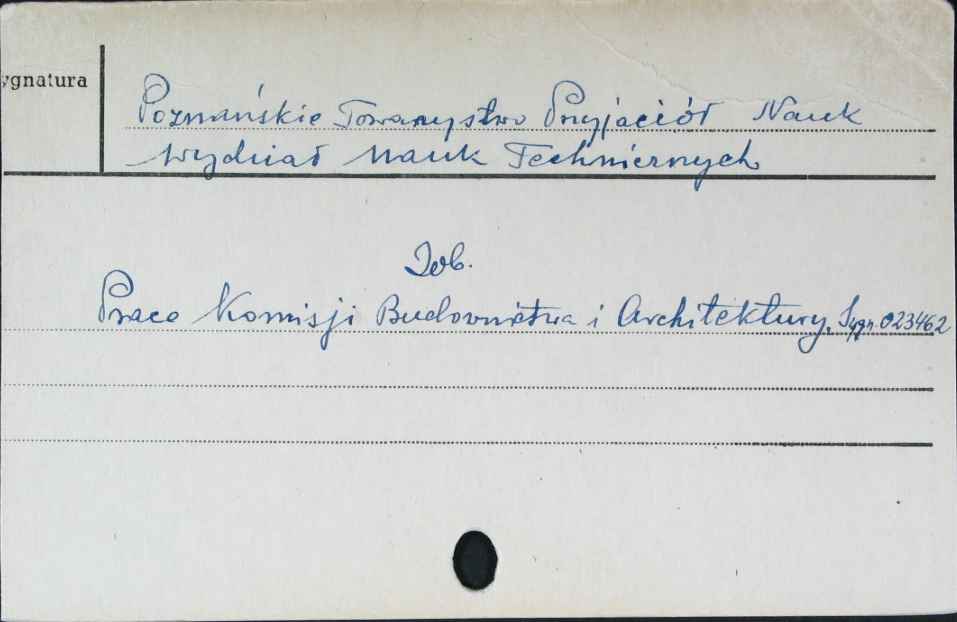 ygnatura
Poznańskie Towarzystwo Przyjaciół Nauk
Wydział Nauk Technicznych
Zob.
Prace Komisji Budownictwa i Architektury, Sygn. 023462